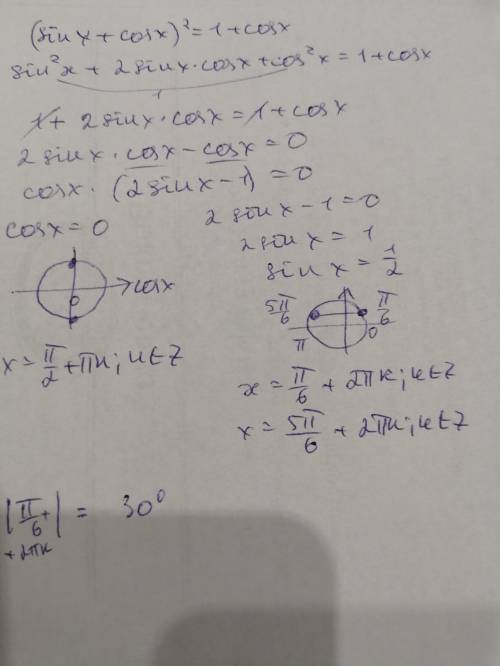 (sin x + cos x)² = 1 + cos x
sin²x + 2 sin x · cos x + cos²x = 1 + cos x
1
1 + 2 sin x · cos x = 1 + cos x
2 sin x · cos x - cos x = 0
cos x · (2 sin x - 1) = 0
cos x = 0
2 sin x - 1 = 0
2 sin x = 1
sin x = 1/2
cos x
0
5π/6
π/6
π
0
x = π/2 + πk; k ∈ Z
x = π/6 + 2πk; k ∈ Z
x = 5π/6 + 2πk; k ∈ Z
|π/6 +| = 30°
+ 2πk